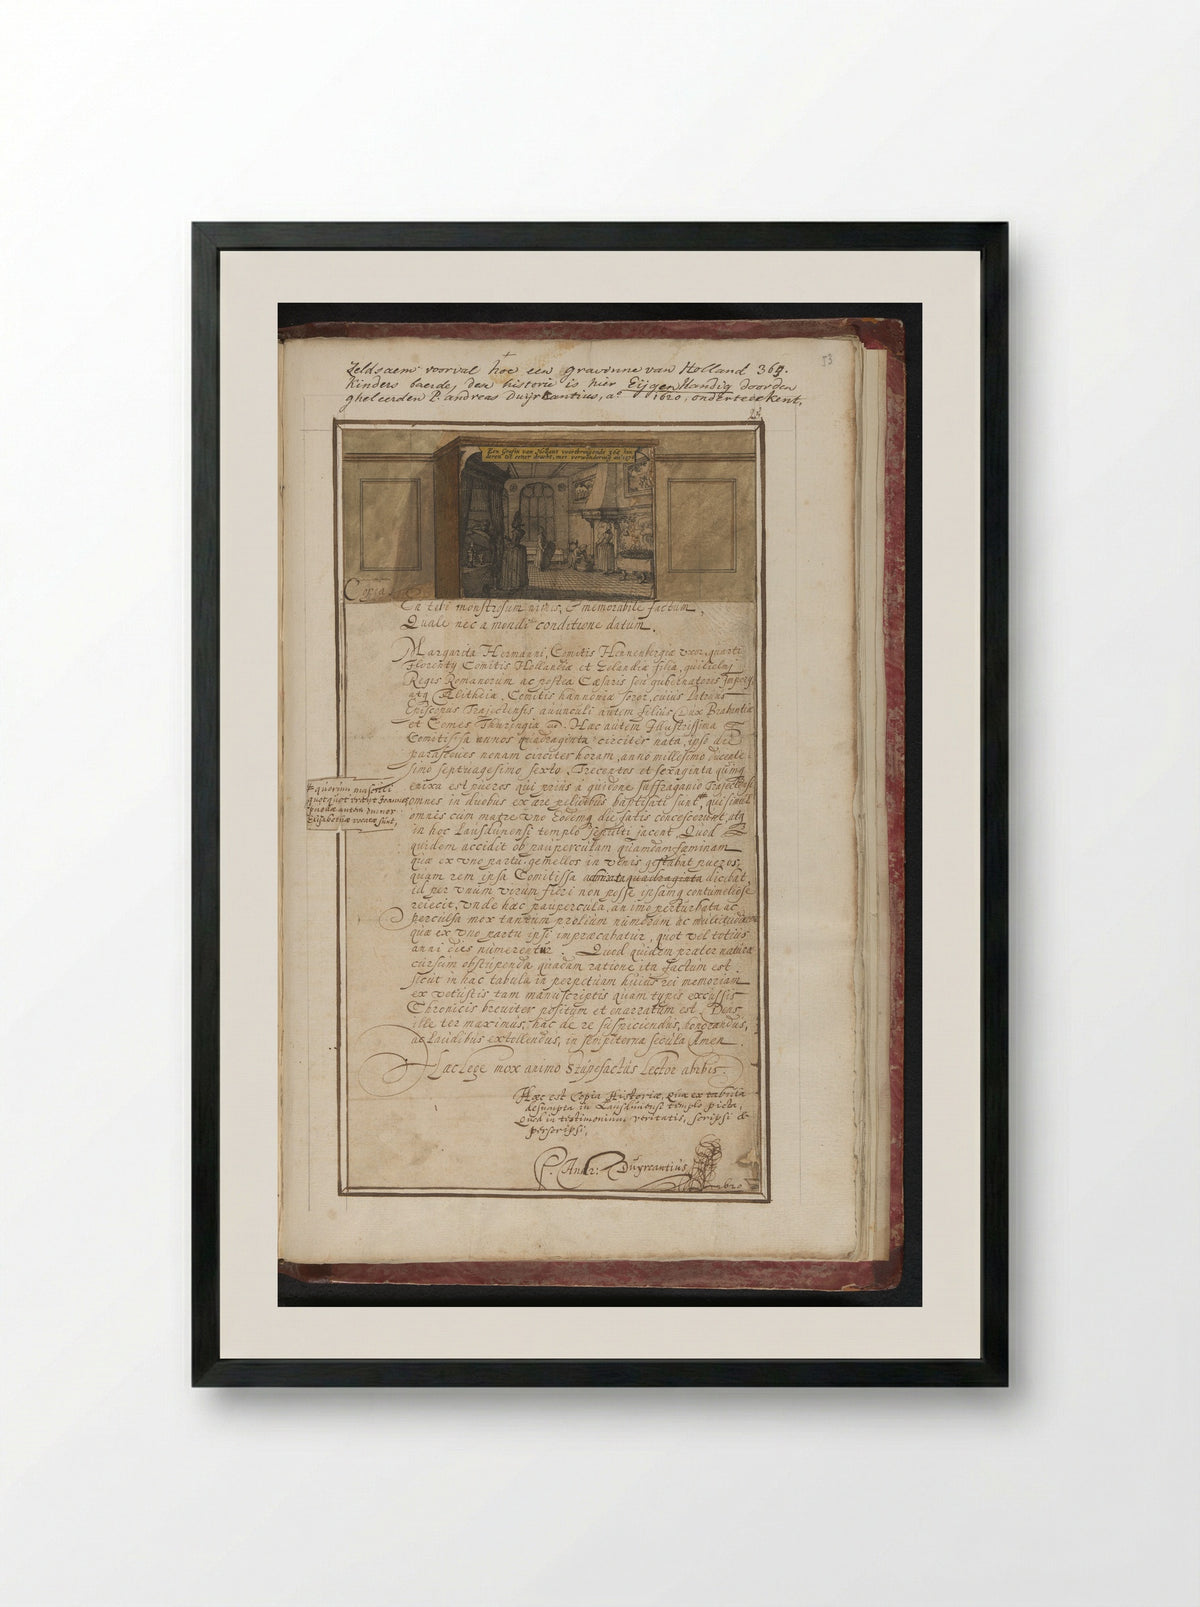 53
Zeldsaem voorval hoe een gravinne van Holland 365.
Kinders baerde, den historie is hier Eijgen Handig door den
gheleerden P. andreas Duijrkantius, aº 1620, onderteekent.
Een Grafin van Hollant voortbrengende 365 kin
deren uit eener dracht, met verwondering anº 1276
Copia
En tibi monstrosum nimis, & memorabile factum,
Quale nec a mundi conditione datum.
Margarita Hermanni, Comitis Hennenbergiæ uxor, quarti
Florenty Comitis Hollandiæ et Zelandiæ filia, guilielmj
Regis Romanorum ac postea Cæsaris seu gubernatoris impery,
atq Alitheiæ, Comitis hannoniæ soror, cuius Patruus
Episcopus Trajectensis avunculi autem filius, Dux Brabantiæ
et Comes Thuringiæ Hæc autem Illustrissima
Comitissa annos quadraginta circiter nata, ipso die
parasceves nonam circiter horam, anno millesimo ducente
simo septuagesimo sexto, Trecentos et sexaginta quinq
enixa est pueros qui prius á guidone suffraganio Trajectense
omnes in duobus ex ære pelvibus baptisati sunt, qui simul
# quorum masculi
quotquot erant Joannes
puellæ autem omnes
Elisabethæ vocatæ sunt,
omnes cum matre uno eodemq die fatis concesserunt, atq
in hoc Lausdunensi templo sepulti jacent. Quod
quidem accidit ob pauperculam quamdam fæminam
quæ ex uno partu gemellos in ulnis gestabat pueros,
quam rem ipsa Comitissa admirata dicebat,
id per unum virum fieri non posse ipsamq contumeliose
reiecit, unde hæc paupercula, animo perturbata ac
perculsa mox tantum prolium numerum ac multitudinem
quæ ex uno partu ipsi impræcabatur, quot vel totius
anni dies numerentur. Quod quidem præter naturæ
cursum obstupenda quadam ratione ita factum est
sicut in hac tabula in perpetuam huius rei memoriam
ex vetustis tam manuscriptis quam typis excussis
Chronicis breviter positum et enarratum est. Deus
ille ter maximus, hac de re suspiciendus, honorandus,
ac Laudibus extollendus, in sempiterna sæcula Amen.
Hæc lege mox animo Stupefactus Lector abibis.
Hæc est Copia Historiæ, quæ ex tabula
desumpta in Lausdunensi templo picta,
Quod in testimonium veritatis, scripsi &
perscripsi,
P. Andr: Duyrcantius